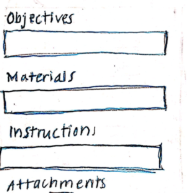 Objectives
Materials
Instructions
Attachments